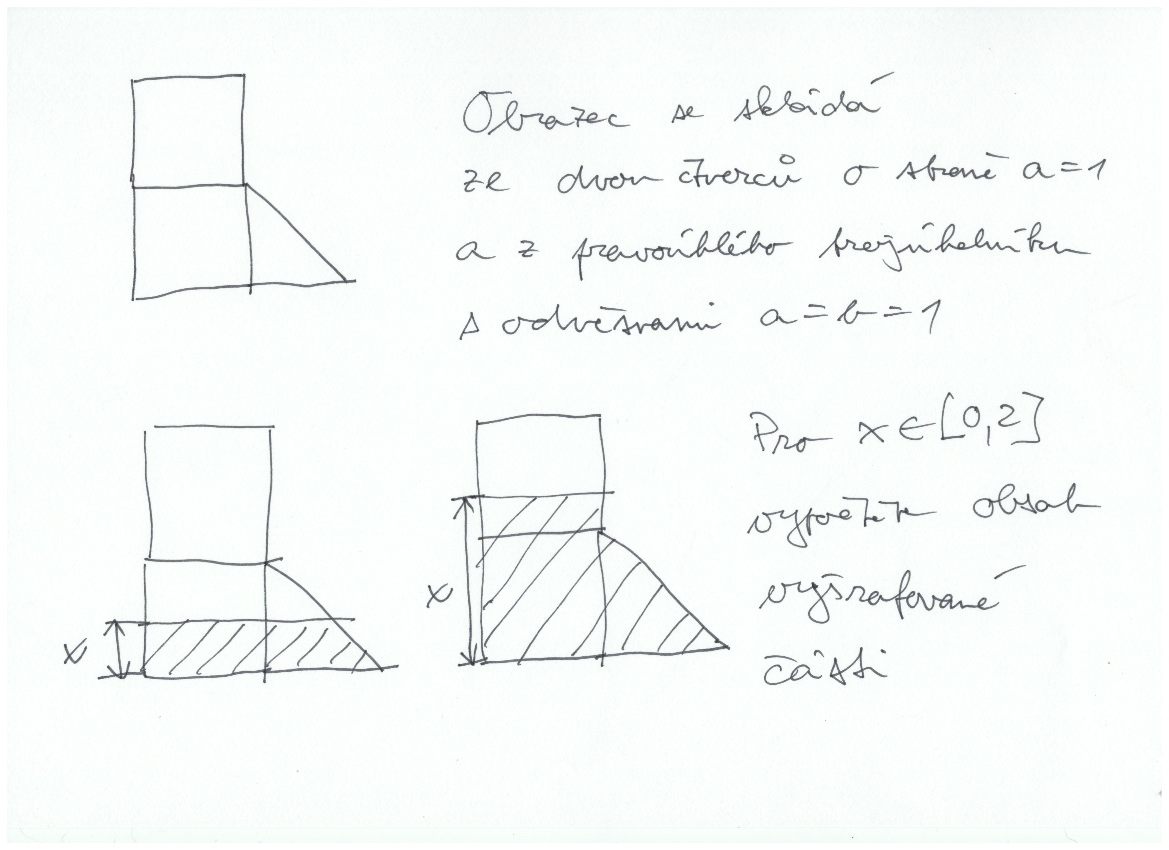 Obrazec se skládá
ze dvou čtverců o straně a=1
a z pravoúhlého trojúhelníku
s odvěsnami a=b=1
Pro x∈[0,2]
vypočtěte obsah
x
x
vyšrafované
části